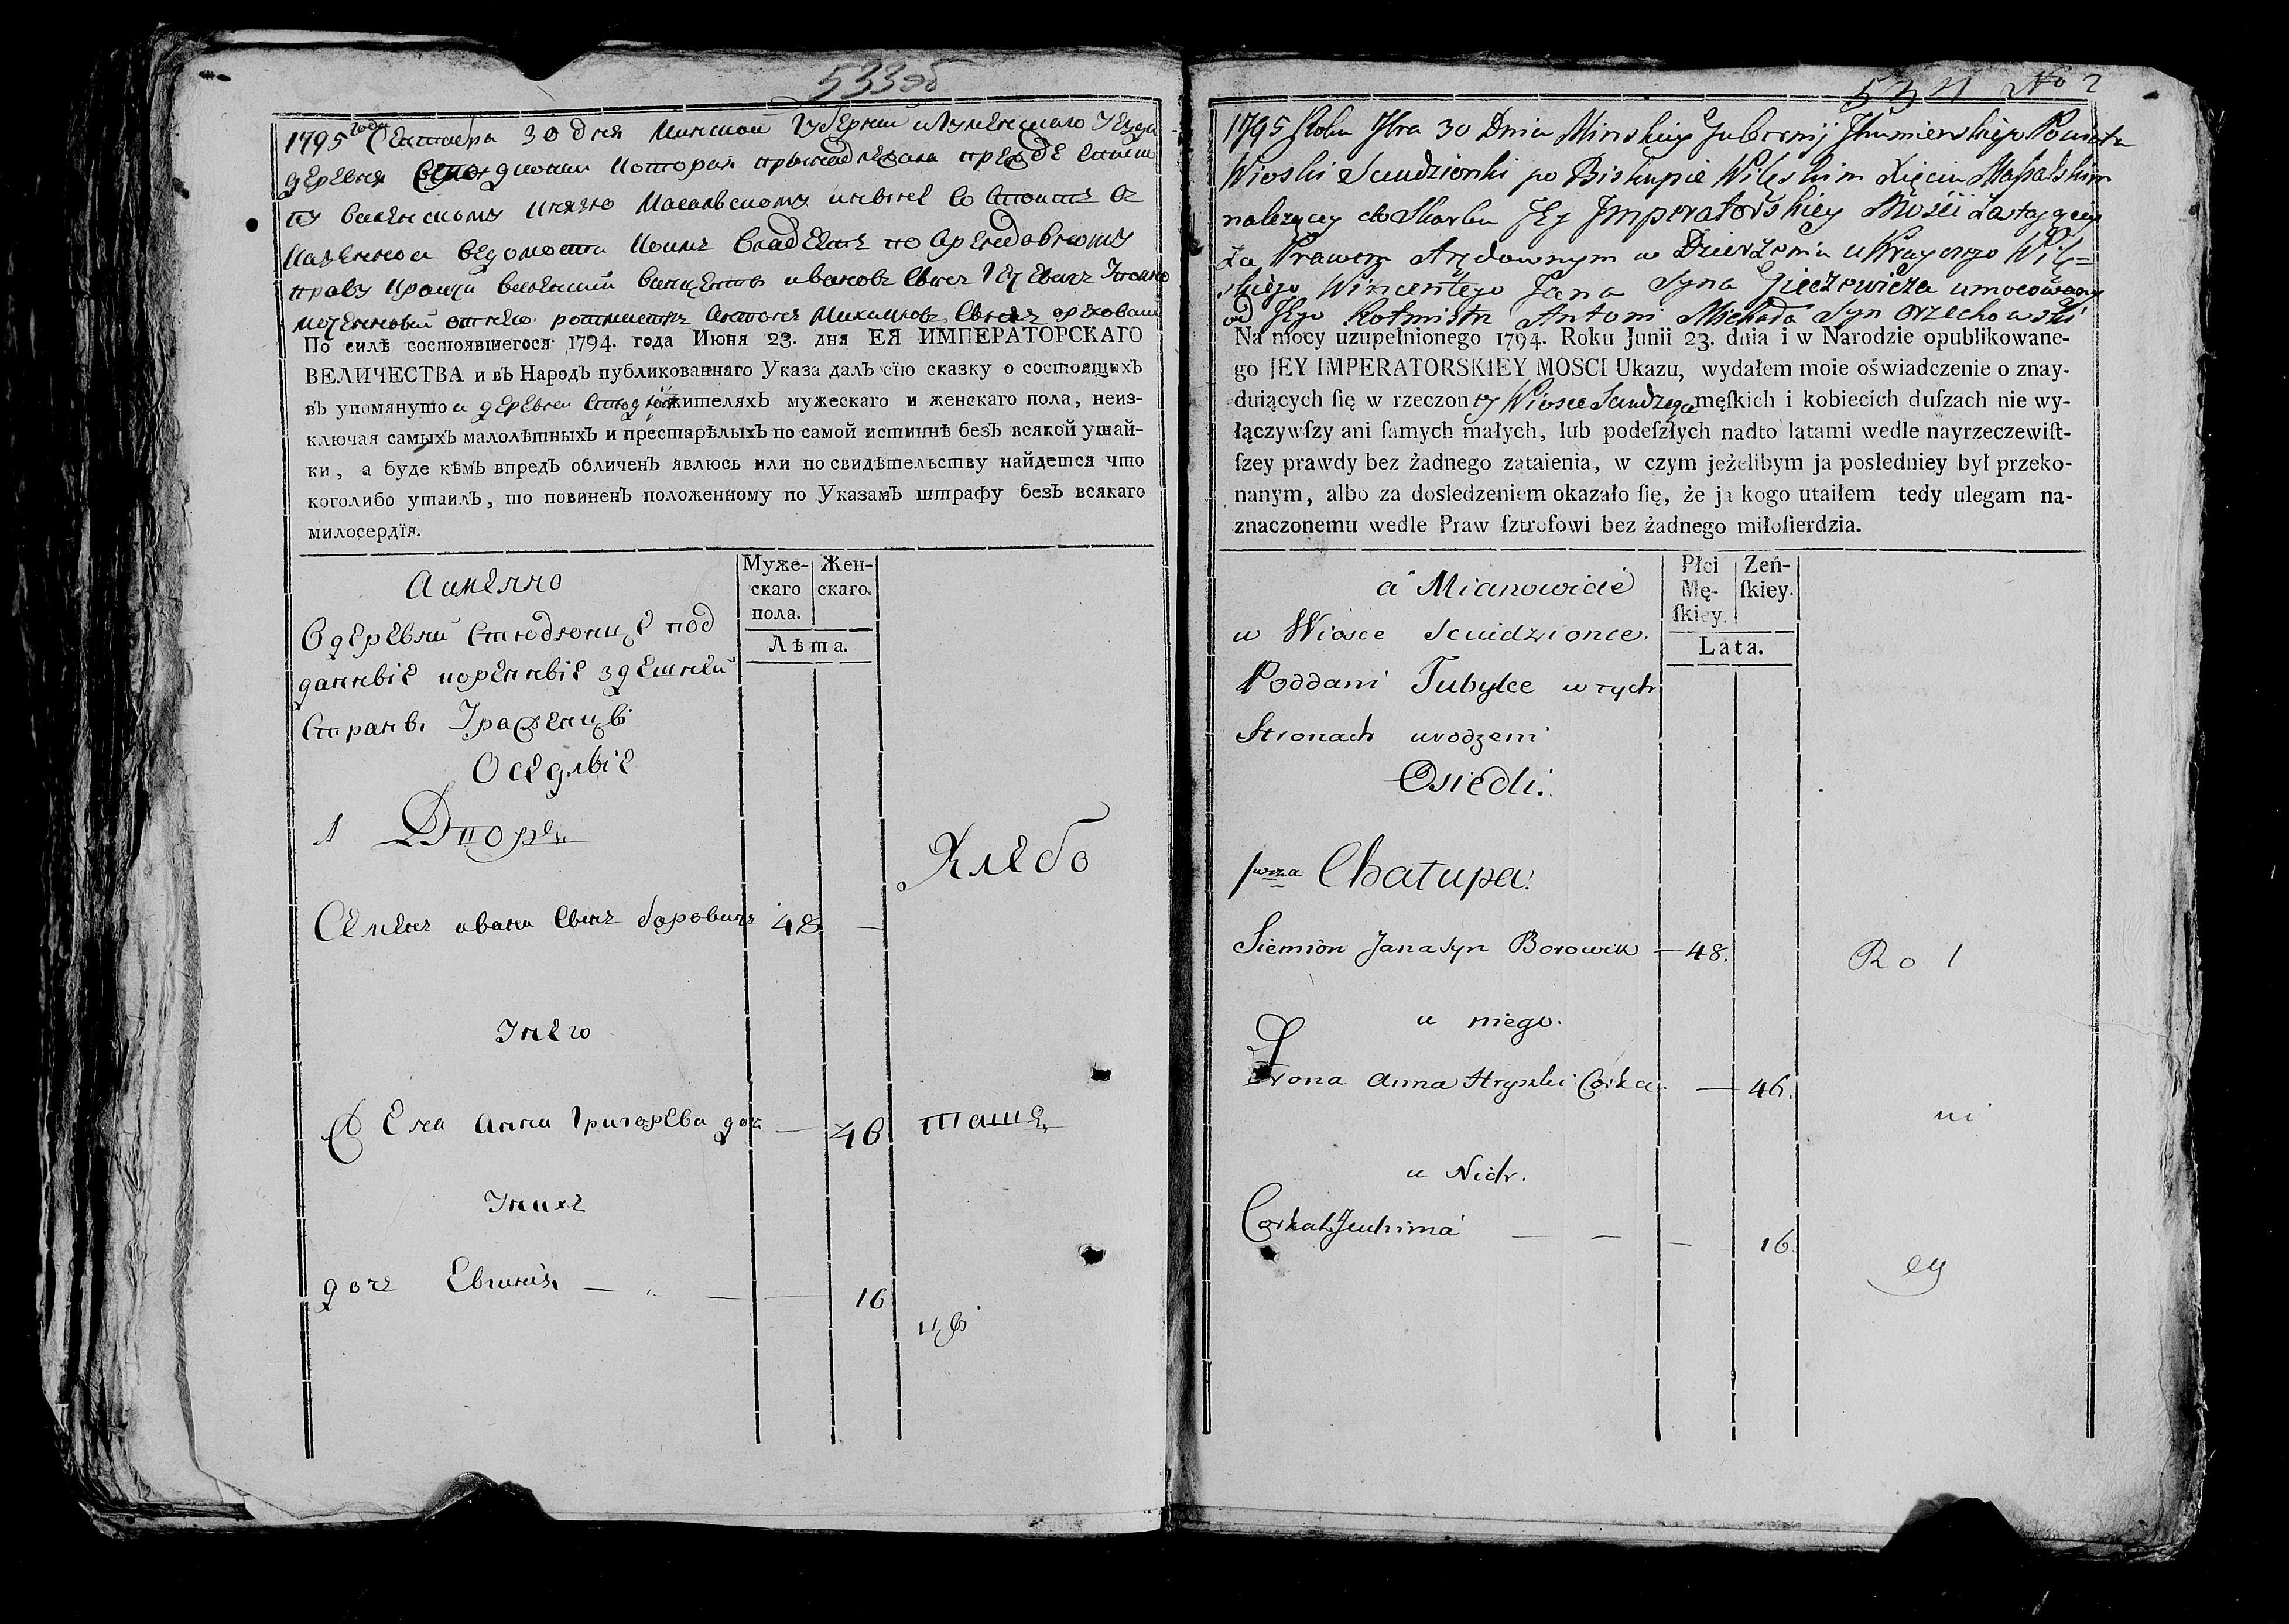 533об
1795 года Сентебра 30 дня Минской Губернии Игуменского уезда
деревня Студионки которая принадлежала прежде
Виленскому Князю Масальскому ныне состоитъ въ
казенной ведомости коимъ владеетъ по арендовному
праву Виленский Винценты Ивановъ сынъ Гецевичъ
отнего ротмистръ Антоне Михайловъ сынъ Ореховский
По силѣ состоявшегося 1794. года Июня 23. дня ЕЯ ИМПЕРАТОРСКАГО
ВЕЛИЧЕСТВА и въ Народъ публикованнаго Указа далъ сїю сказку о состоящихъ
въ упомянутой деревни жителяхъ мужескаго и женскаго пола, неиз-
ключая самыхъ малолѣтныхъ и престарѣлыхъ по самой истиннѣ безъ всякой утай-
ки, а буде кѣмъ впредъ обличенъ явлюсь или по свидѣтельству найдется что
коголибо утаилъ, то повиненъ положенному по Указамъ штрафу безъ всякаго
милосердїя.
Муже-
скаго
пола.
Жен-
скаго.
Лѣта.
А имянно
В деревни Студионце под
данные коренные здешней
страны Урожденцы
Оседлые
1 Дворъ
Хлебо
Семенъ Ивана сынъ Боровикъ 48 —
У него
Жена Анна Григорева доч — 46 паш
У нихъ
дочъ Евгиния — „ — — 16
цы
534 No 2
1795 Roku 7bra 30 Dnia Minskiey Gubernij Jhumienskiego Powiatu
Wioski Studzionki po Biskupie Wileńskim Xięciu Massalskim
należący do Skarbu Jey Imperatorskiey Mości zostający
za Prawem Arędownym w Dzierżeniu u Krayczego Wileń=
skiego Wincentego Jana Syna Gieczewicza umocowany
od Jego Rotmistr Antoni Michała Syn Orzechowski
Na mocy uzupełnionego 1794. Roku Junii 23. dnia i w Narodzie opublikowane-
go JEY IMPERATORSKIEY MOSCI Ukazu, wydałem moie oświadczenie o znay-
duiących ſię w rzeczoney Wiosce męſkich i kobiecich duſzach nie wy-
łączywſzy ani ſamych małych, lub podeſzłych nadto latami wedle nayrzeczewiſt-
ſzey prawdy bez żadnego zataienia, w czym jeżelibym ja posledniey był przeko-
nanym, albo za dosledzeniem okazało ſię, że ja kogo utaiłem tedy ulegam na-
znaczonemu wedle Praw ſztrofowi bez żadnego miłoſierdzia.
Płci
Mę-
ſkiey.
Zeń-
ſkiey.
Lata.
a Mianowicie
w Wiosce Studzionce.
Poddani Tubylce w tych
Stronach urodzeni
Osiedli.
pwsza Chałupa.
Siemion Jana Syn Borowik — 48.
Rol
u niego.
Żona Anna Hryszki Corka — 46.
ni
u Nich.
Corka Jeuhima — — — 16.
cy